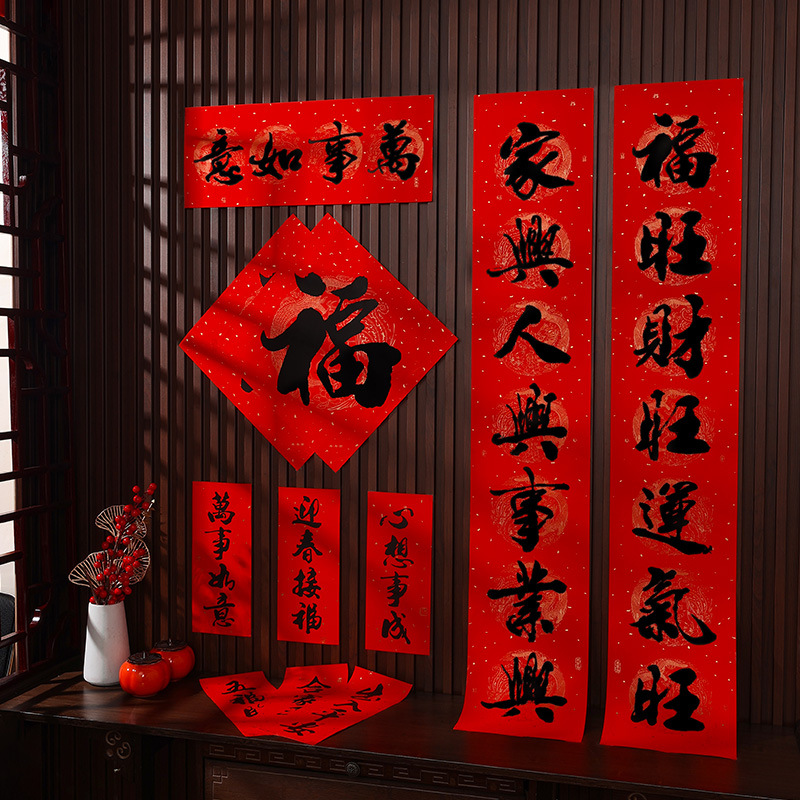 萬事如意
福旺財旺運氣旺
家興人興事業興
福
萬事如意
迎春接福
心想事成
出入平安